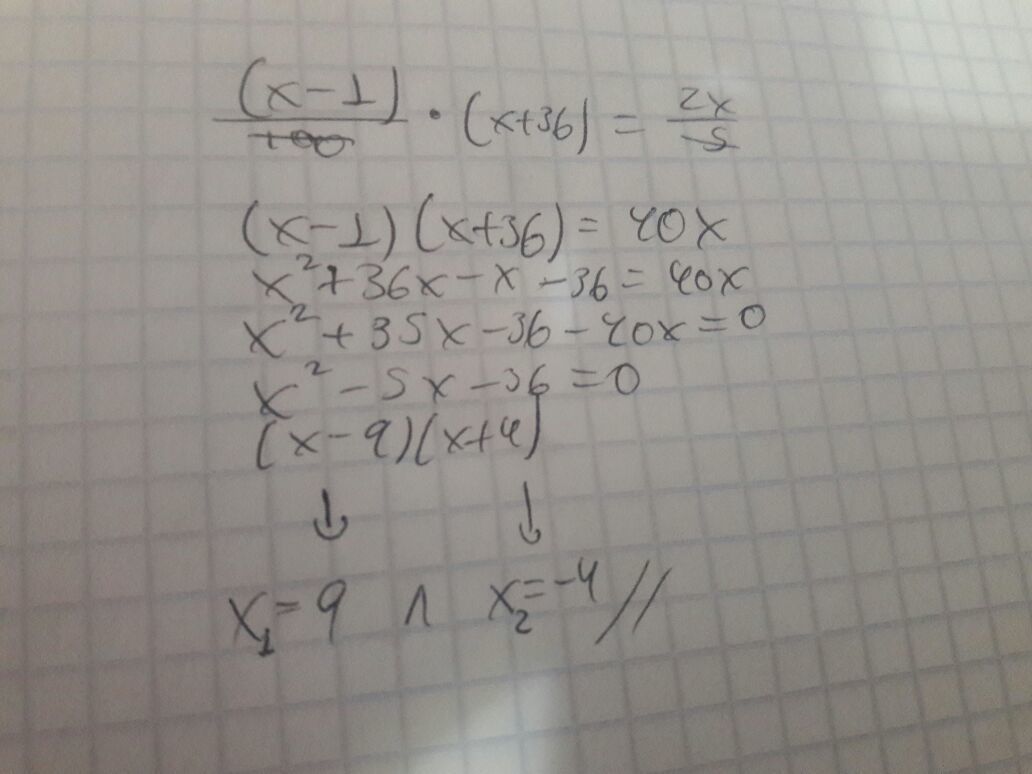 (x-1)/100 · (x+36) = 2x/5
(x-1)(x+36) = 40x
x²+36x-x-36 = 40x
x²+35x-36-40x=0
x²-5x-36=0
(x-9)(x+4)
↓ ↓
x₁=9 ∧ x₂=-4 //